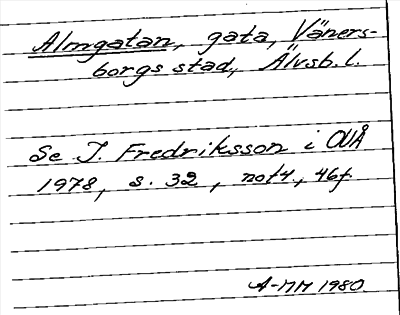 Almgatan, gata, Väners-
borgs stad, Älvsb. l.
Se I. Fredriksson i OUÅ
1978, s. 32, not 4, 46f
A-MM 1980